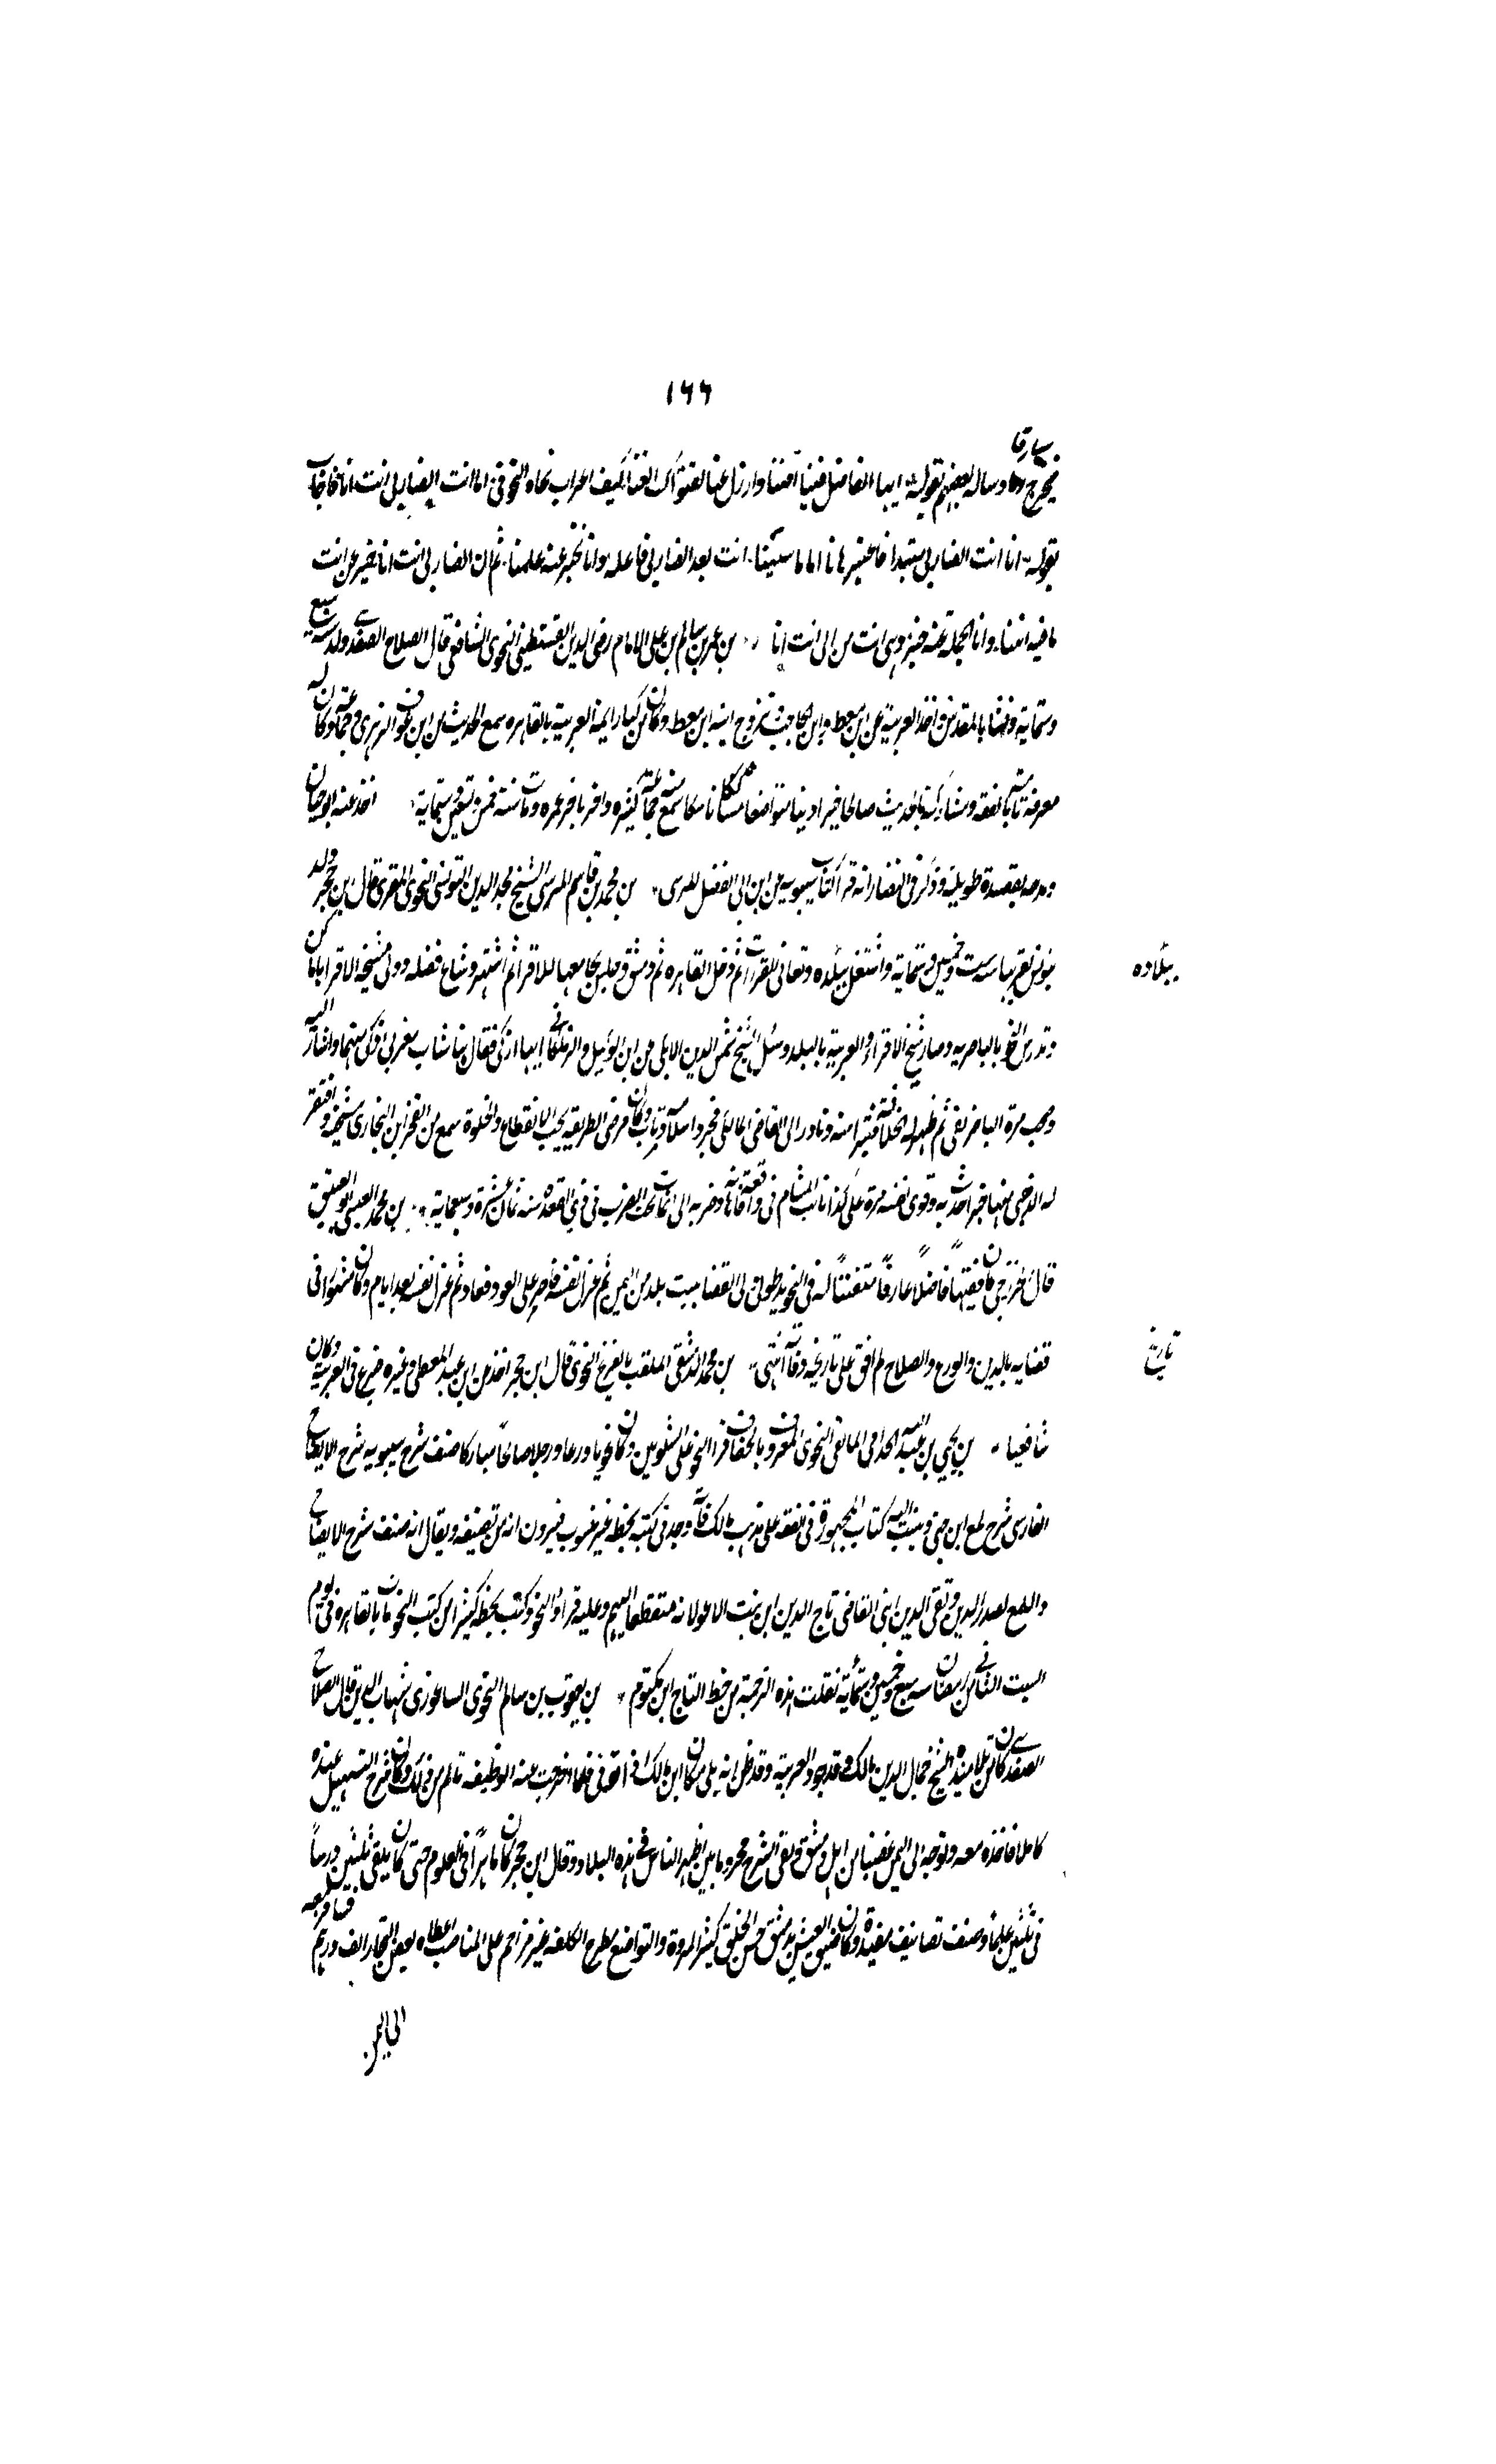 ١٦٦
فيخرج سارقا وساله بعضهم بقوله ايها الفاضل فينا افتنا وازل عنا بفتواك العنا كيف اعراب نحاة النحو في انا انت الضاربي انت انا فاجاب
بقوله انا انت الضاربي مبتدا فاعتبرها نا اماما سكينا انت بعد الضاربي فاعله وانا يخبر عنه علنا ثم ان الضاربي انت انا خبر عن انت
ما فيه انثنا وانا الجملة عنه خبر وهي من انت الى انت انا بن عمر بن سالم بن علي الامام رضي الدين القسنطيني النحوي الشافعي قال الصلاح الصفدي ولد سنة سبع
وستماية ونشا بالقدس واخذ العربية عن ابن معط وابن الحاجب وتزوج ابنة ابن معط وكان من كبار ايمة العربية بالقاهرة سمع الحديث من ابن عوف الزهري وجماعة وكان له
معرفة تامة بالفقه ومشاركة بالحديث صالحا خيرا دينا متواضعا ساكنا ناسكا سمع منه جماعة كثيرة واضر باخر عمره ومات سنة خمس وتسعين وستماية اخذ عنه ابو حيان
ومدحه بقصيدة طويلة وذكر في النضار انه قرا كتاب سيبويه عن ابن ابي الفضل المرسي بن محمد بن قاسم المرسي الشيخ مجد الدين التونسي النحوي المقري قال ابن حجر ولد
بتونس تقريبا سنة ست وخمسين وستماية واشتغل ببلاده وتعانى القرات ثم دخل القاهرة ثم دمشق وجلس بجامعها للاقرا ثم اشتهر وشاع فضله وولي مشيخة الاقرا باماكن
ببلاده
وتدريس النحو بالناصرية وصار شيخ الاقراء والعربية بالبلد وسئل الشيخ شمس الدين الايكي من ابن الوكيل والزملكاني ايهما ازكى فقال هنا شاب مغربي اذكى منهما واشار اليه
وصحب مرة الباجريقي ثم ظهر له انحلاله فتبرا منه وبادر الى القاضي المالكي فجدد اسلامه وتاب وكان مرضي الطريقة يحب الانقطاع والخلوة سمع من الفخر ابن البخاري مشيخته وانتقى
له الذهبي منها جزا حدث به وقوى نفسه مرة على كذا نايب الشام في واقعة فاهانه وضربه الى ان مات تحت الضرب في ذي القعدة سنة ثمان عشرة وسبعماية بن محمد العبسي ابو العتيق
قال الخزرجي كان فقيها فاضلا عارفا متفننا له في النحو يد طولى ولي القضا ببيت بلد من اليمن ثم عزل نفسه فاصر على العود فعاد ثم عزل نفسه بعد ايام وكان مشهورا في
قضايه بالدين والورع والصلاح لم اقف على تاريخ وفاته انتهى بن محمد الدمشقي الملقب بالفرخ النحوي قال ابن حجر اخذ عن ابن عبد المعطي وغيره وبرع في العربية وكان
تاريخ
شافعيا بن يحيى بن عبد الله الجذامي المالقي النحوي المعروف بالخفاف قرا النحو على الشلوبين وكان نحويا ورعا ورجلا صالحا مباركا صنف شرح سيبويه شرح الايضاح
الفارسي شرح لمع ابن جني وينسب اليه كتاب المجهورة في الفقه على مذهب مالك فانه وجد في كتبه بخطه غير منسوب فيرون انه من تصنيفه ويقال انه صنف شرح الايضاح
واللمع لصدر الدين وتقي الدين ابني القاضي تاج الدين ابن بنت الاعز لانه منقطعا اليهم وعليه قراوا النحو وكتب بخطه كثيرا من كتب النحو مات بالقاهرة في يوم
السبت الثاني من رمضان سنة سبع وخمسين وستماية نقلت هذه الترجمة من خط التاج ابن مكتوم بن يعقوب بن سالم النحوي الشاغوري شهاب الدين قال الصلاح
الصفدي كان من تلامذة الشيخ جمال الدين بن مالك وقد جود العربية وقد ظن انه يلي مكان ابن مالك اذا توفي فلما اخرجت عنه الوظيفة تالم من ذلك وكان شرح التسهيل عنده
كاملا فاخذه معه وتوجه الى اليمن غضبا من اهل دمشق وبقي الشرح مخروما بين اظهر الناس في هذه البلاد وقال ابن حجر كان ماهرا في العلوم حتى كان يلقي ثلثين درسا
في ثلثين علما وصنف تصانيف مفيدة وكان ضيق العيش بدمشق حسن الخلق كثير المروة والتواضع مطرح الكلفة غير مزاحم على المناصب اعطاه بعض التجار الف درهم فسافر معه
الى اليمن